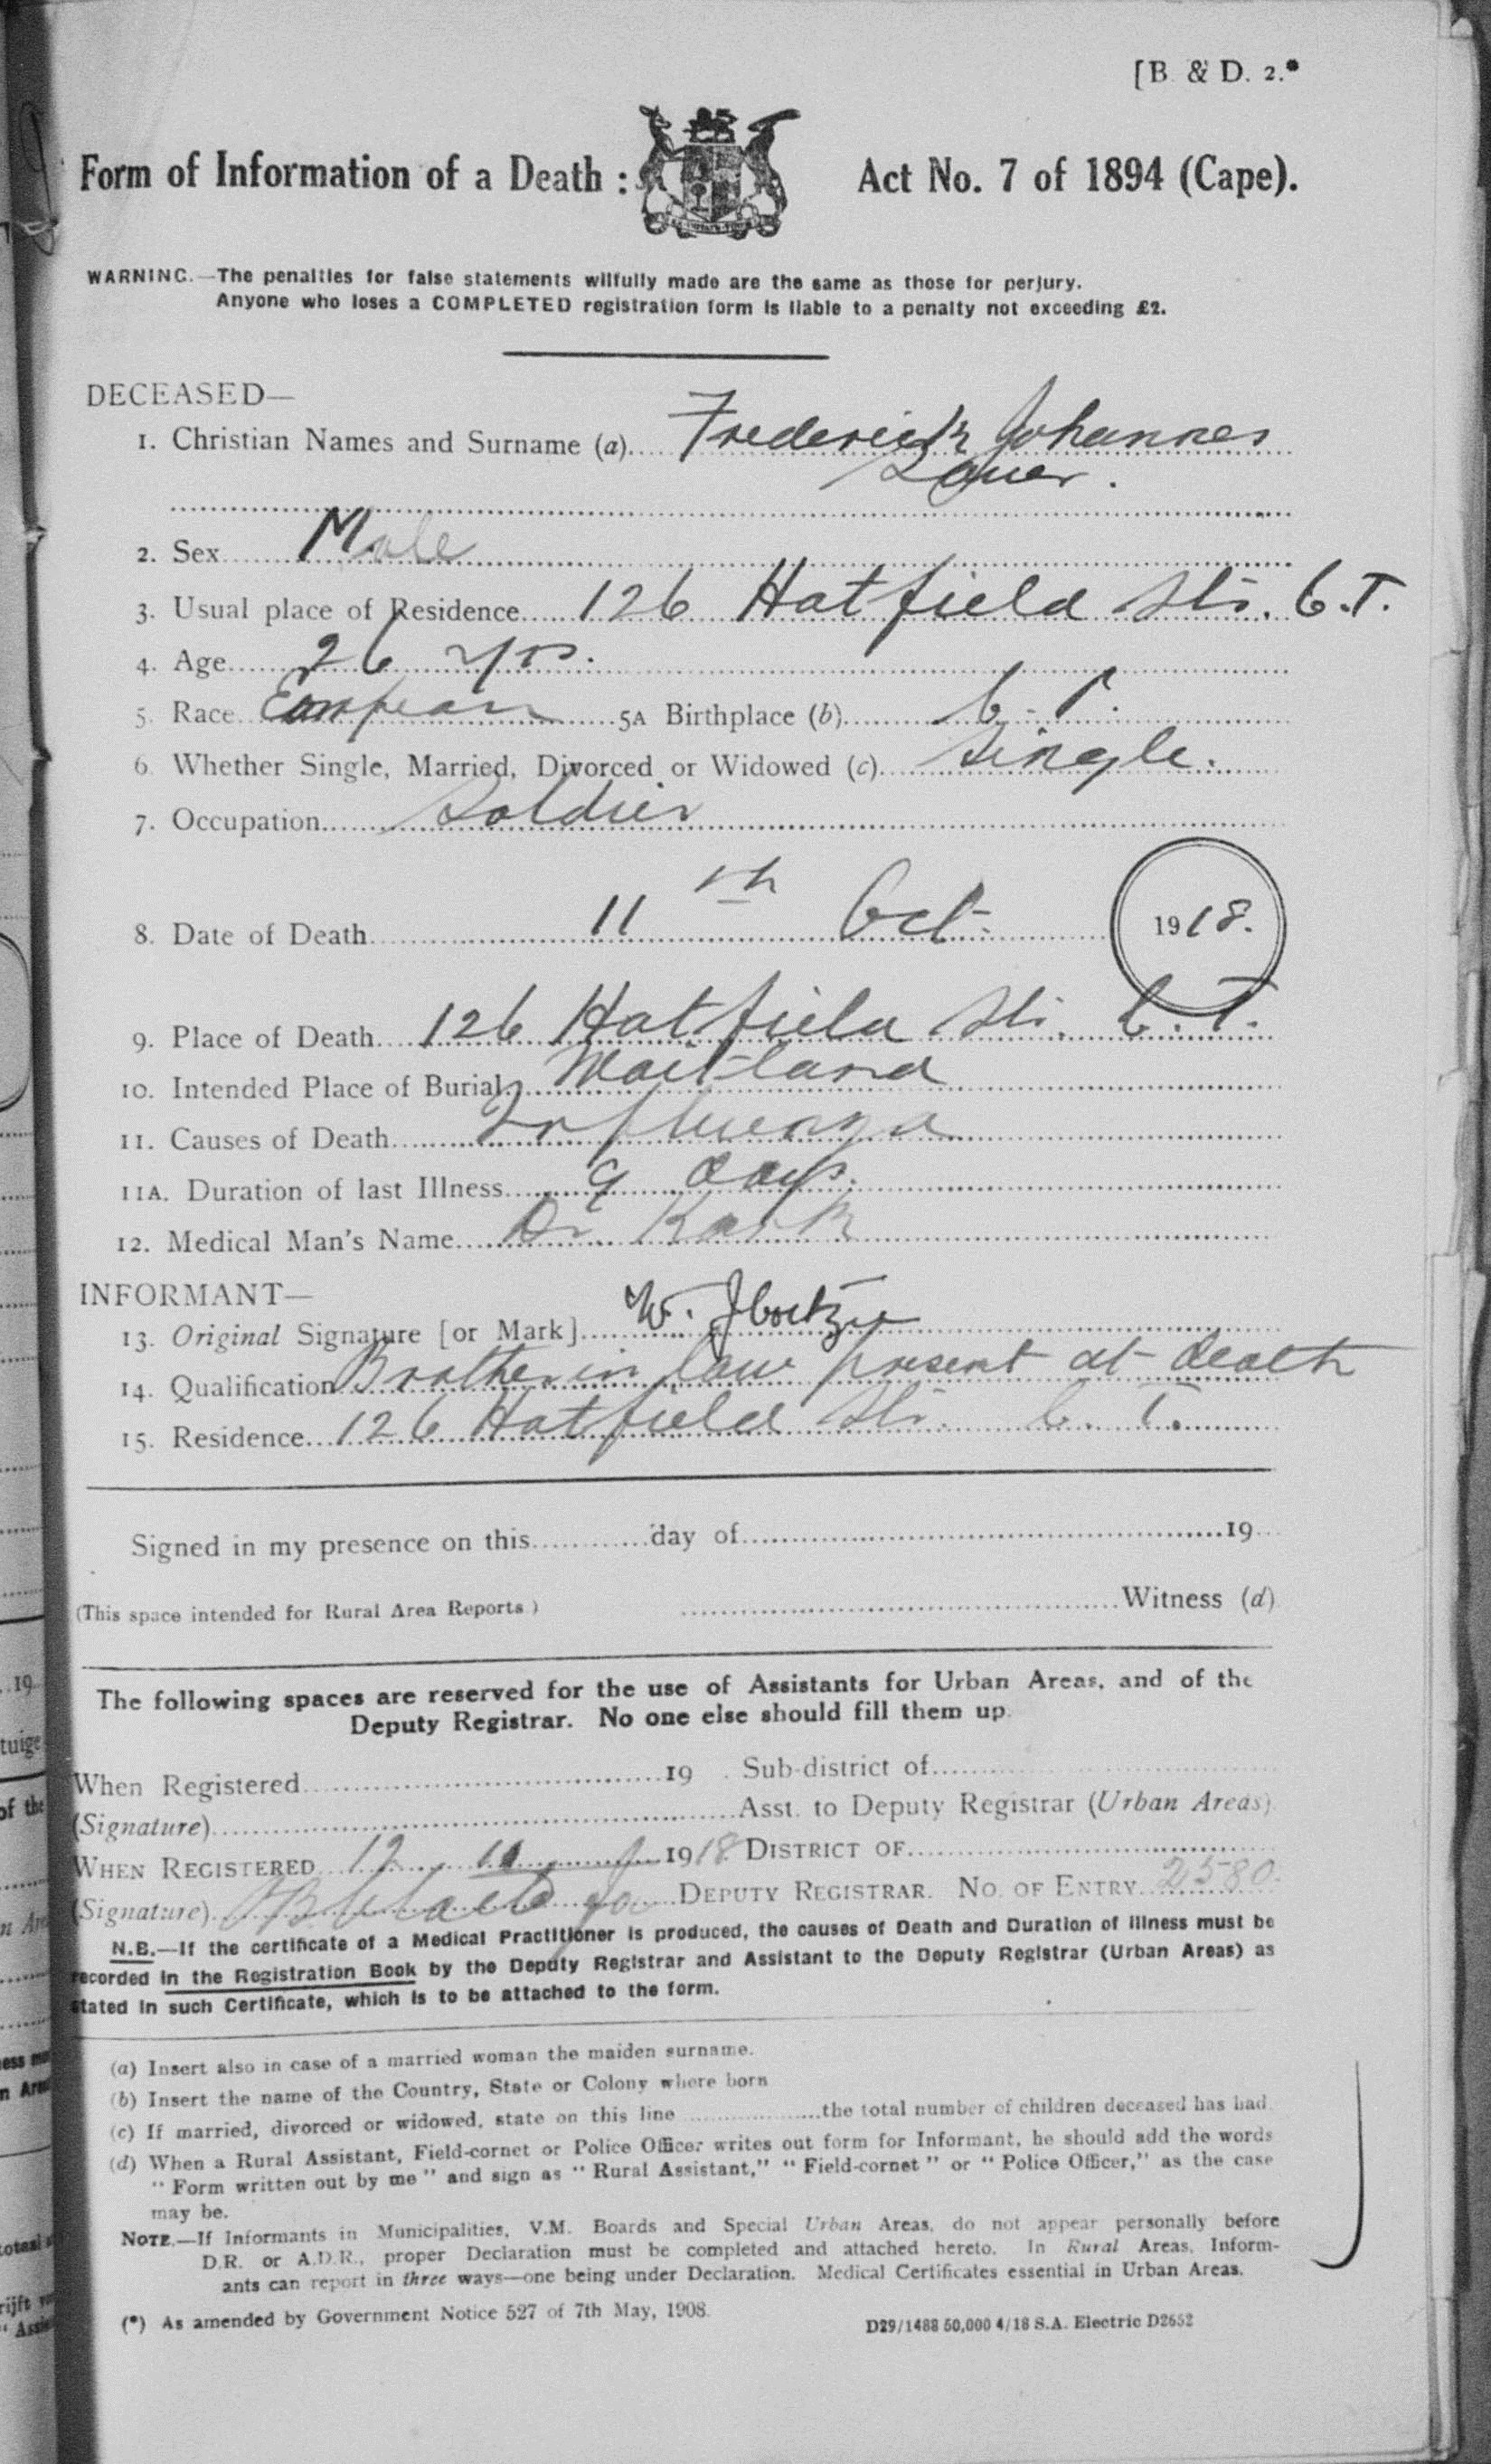 [B. & D. 2.*
Form of Information of a Death : Act No. 7 of 1894 (Cape).
WARNING.—The penalties for false statements wilfully made are the same as those for perjury.
Anyone who loses a COMPLETED registration form is liable to a penalty not exceeding £2.
DECEASED—
1. Christian Names and Surname (a) Frederick Johannes
2. Sex Male
3. Usual place of Residence 126 Hatfield Str. C.T.
4. Age 26 yrs.
5. Race European 5A Birthplace (b) C.T.
6. Whether Single, Married, Divorced or Widowed (c) Single.
7. Occupation Soldier
8. Date of Death 11th Oct. 1918.
9. Place of Death 126 Hatfield Str. C.T.
10. Intended Place of Burial Maitland
11. Causes of Death Influenza
11A. Duration of last Illness 9 days.
12. Medical Man's Name Dr
INFORMANT—
13. Original Signature [or Mark] W.
14. Qualification Brother in law present at death
15. Residence 126 Hatfield Str. C.T.
Signed in my presence on this day of 19
(This space intended for Rural Area Reports.) Witness (d)
The following spaces are reserved for the use of Assistants for Urban Areas, and of the
Deputy Registrar. No one else should fill them up.
When Registered 19 . Sub-district of
(Signature) Asst. to Deputy Registrar (Urban Areas)
WHEN REGISTERED 12 10 1918 DISTRICT OF
(Signature) DEPUTY REGISTRAR. NO. OF ENTRY 2580.
N.B.—If the certificate of a Medical Practitioner is produced, the causes of Death and Duration of Illness must be
recorded in the Registration Book by the Deputy Registrar and Assistant to the Deputy Registrar (Urban Areas) as
stated in such Certificate, which is to be attached to the form.
(a) Insert also in case of a married woman the maiden surname.
(b) Insert the name of the Country, State or Colony where born
(c) If married, divorced or widowed, state on this line the total number of children deceased has had.
(d) When a Rural Assistant, Field-cornet or Police Officer writes out form for Informant, he should add the words
“ Form written out by me ” and sign as “ Rural Assistant,” “ Field-cornet ” or “ Police Officer,” as the case
may be.
NOTE.—If Informants in Municipalities, V.M. Boards and Special Urban Areas, do not appear personally before
D.R. or A.D.R., proper Declaration must be completed and attached hereto. In Rural Areas, Inform-
ants can report in three ways—one being under Declaration. Medical Certificates essential in Urban Areas.
(*) As amended by Government Notice 527 of 7th May, 1908.
D29/1488 50,000 4/18 S.A. Electric D2652